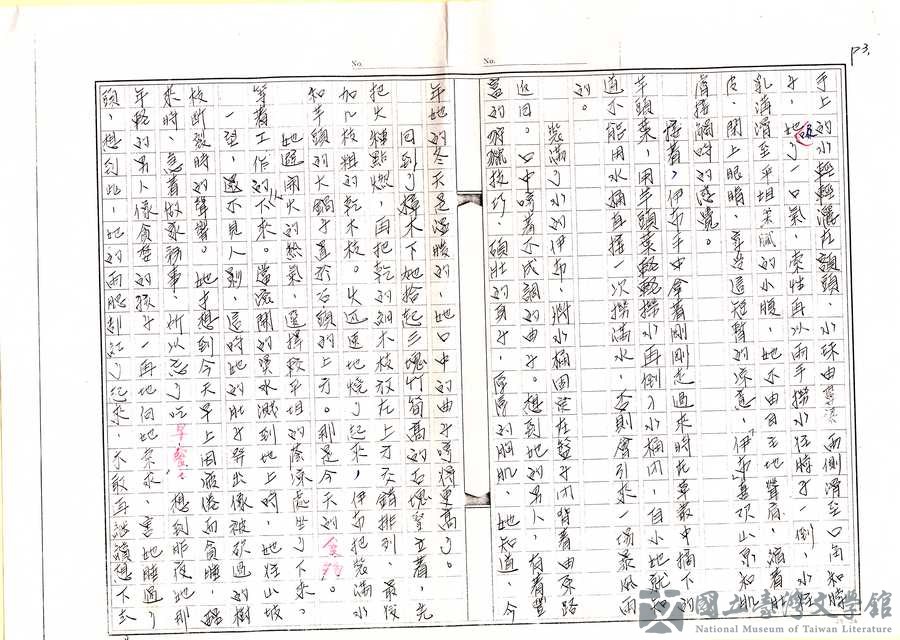 P3.
No.
No.
手上的水輕輕灑在額頭，水珠由 兩側滑至口角和脖
子，她 了一口氣，索性再以兩手撈水往脖子一倒，水經
乳溝滑至平坦 膩的小腹，她不由自主地聳肩，縮著肚
皮，閉上眼睛，享受這短暫的涼意，伊布喜歡小山泉和肌
膚接觸時的感覺。
接著，伊布手中拿著剛剛走過來時在草叢中摘下的
芋頭葉，用芋頭葉輕輕撈水再倒入水桶內，自小她就知
道不能用水桶直接一次撈滿水，否則會引來一場暴風雨
的。
裝滿了水的伊布，將水桶固定在 背著由原路
返回。口中哼著不成調的曲子。想到她的男人，有著豐
富的狩獵技巧，碩壯的身子，厚厚的胸肌，她知道，今
年她的冬天是溫暖的，她口中的曲子哼得更高了。
回到了 木下她拾起三塊竹筒高的石塊豎立著，先
把火種點燃，再把乾的細木枝放在上方交錯排列，最後
加幾枝粗的乾木枝。火迅速地燒了起來，伊布把裝滿水
和芋頭的大鍋子置於石頭的上方。那是今天的食物
她避開火的熱氣，選擇較平坦的蔭涼處坐了下來。
等著工作的人下來。當滾開的燙水濺到地上時，她往山坡
一望，還不見人影，這時她的肚子發出像被砍過的樹
枝斷裂時的聲響。她才想到今天早上因疲倦而貪睡，醒
來時，急著做家務事，所以忘了吃早餐。想到昨夜她那
年輕的男人像貪婪的孩子一再地向她索求，害她睡過
頭，想到此，她的兩腮都紅了起來，不敢再繼續想下去
國立臺灣文學館
National Museum of Taiwan Literature